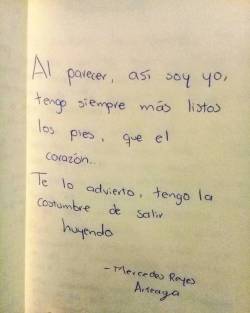 Al parecer, así soy yo,
tengo siempre más listos
los pies, que el
corazón..
Te lo advierto, tengo la
costumbre de salir
huyendo
- Mercedes Reyes
Arteaga